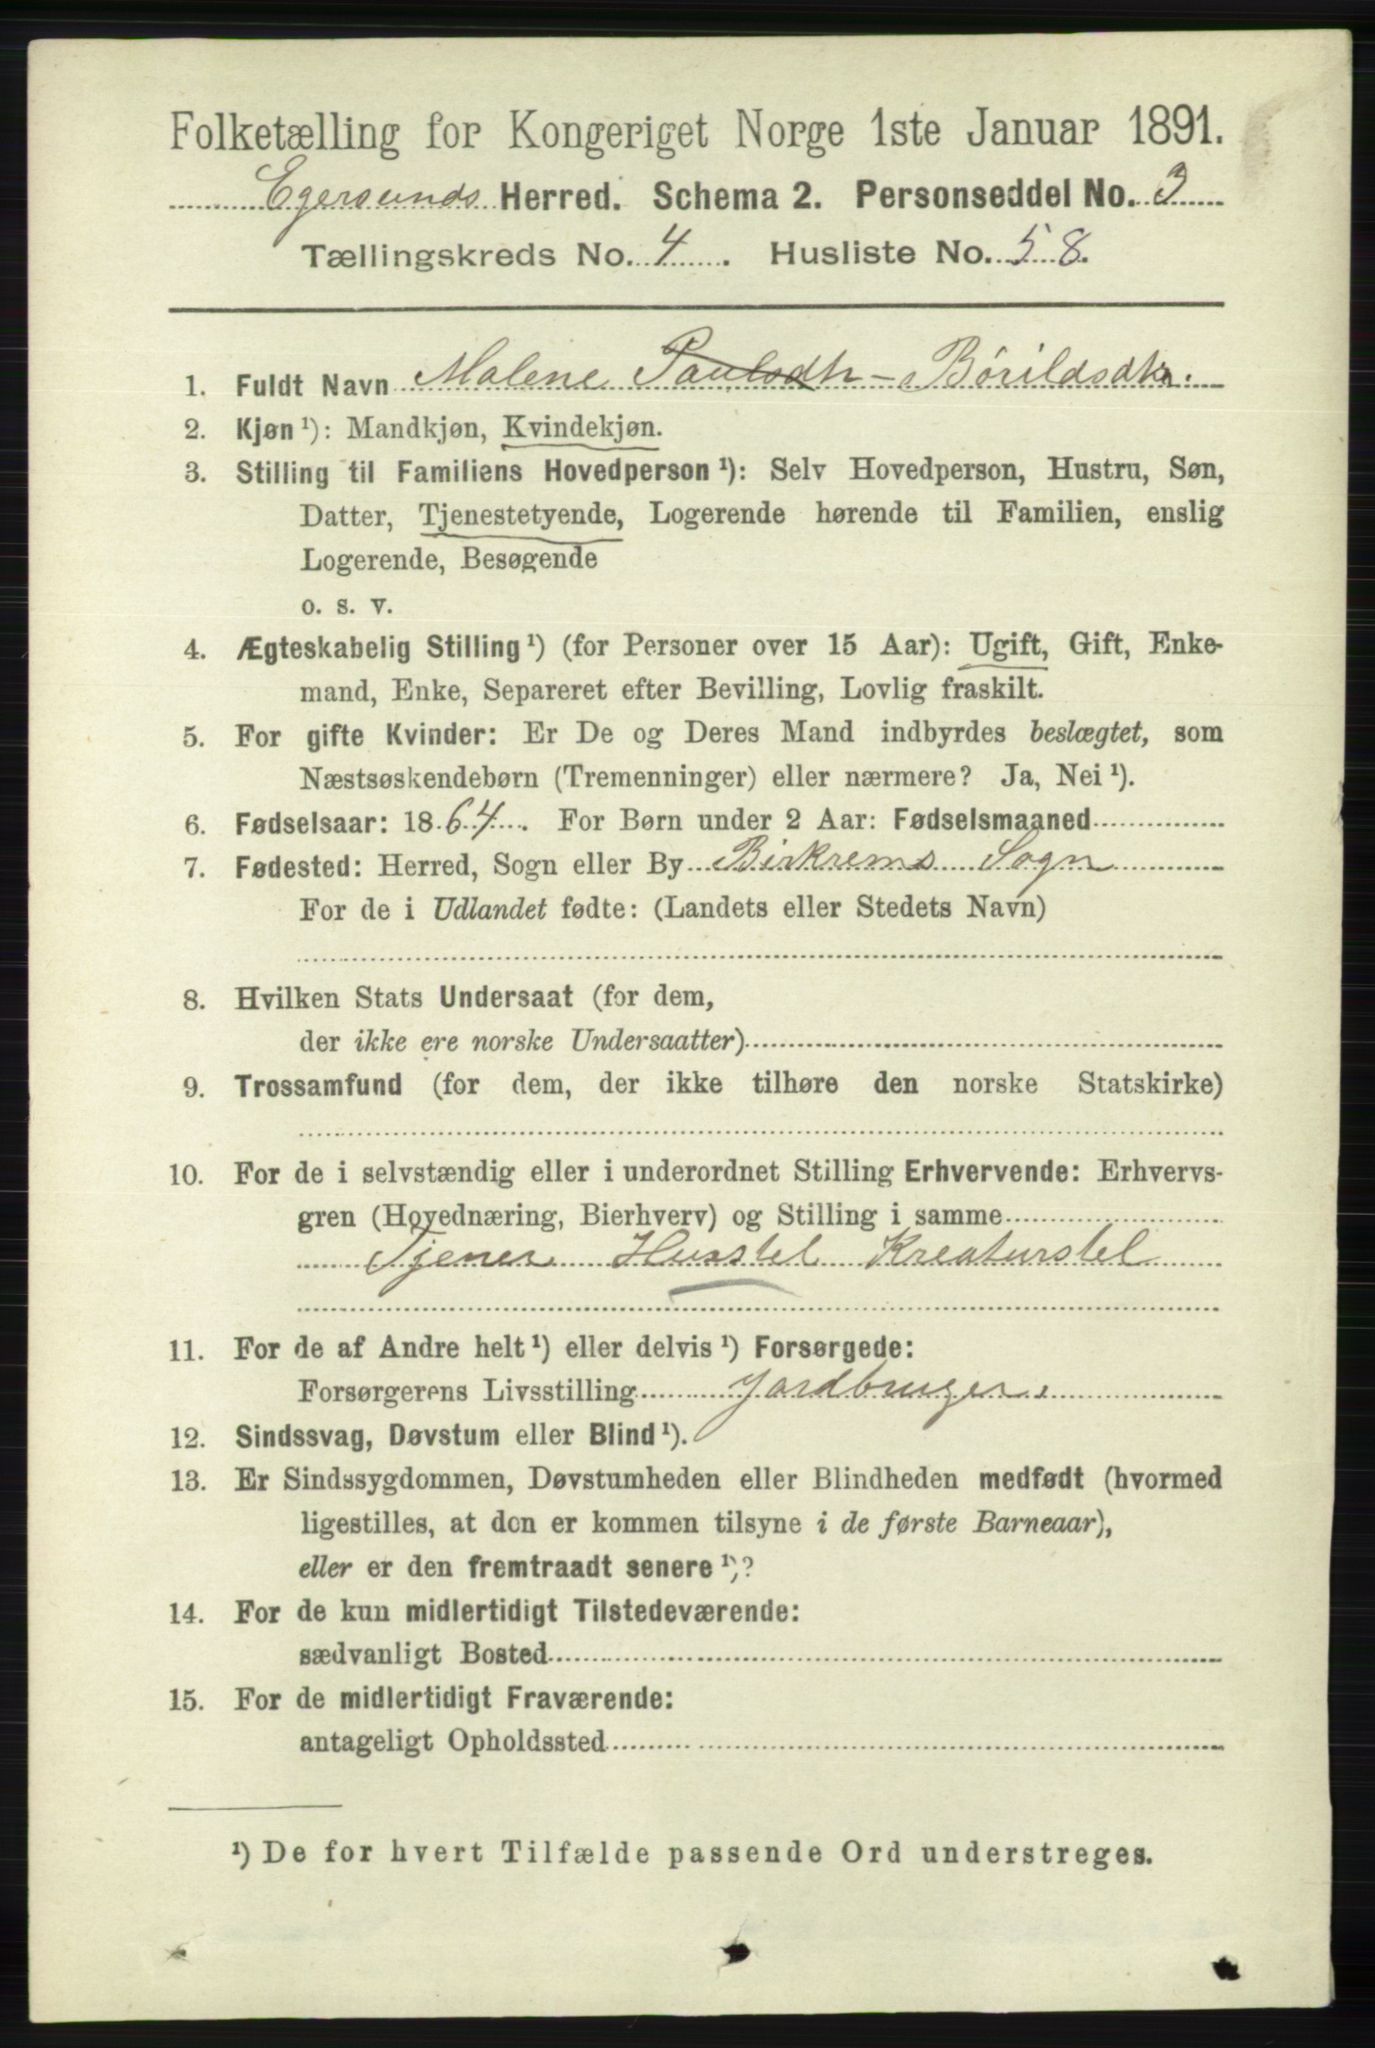 Folketælling for Kongeriget Norge 1ste Januar 1891.
Egersunds Herred. Schema 2. Personseddel No. 3
Tællingskreds No. 4. Husliste No. 58.
1. Fuldt Navn Malene Paulsdtr - Börildsdtr.
2. Kjøn¹): Mandkjøn, Kvindekjøn.
3. Stilling til Familiens Hovedperson¹): Selv Hovedperson, Hustru, Søn,
Datter, Tjenestetyende, Logerende hørende til Familien, enslig
Logerende, Besøgende
o. s. v.
4. Ægteskabelig Stilling¹) (for Personer over 15 Aar): Ugift, Gift, Enke-
mand, Enke, Separeret efter Bevilling, Lovlig fraskilt.
5. For gifte Kvinder: Er De og Deres Mand indbyrdes beslægtet, som
Næstsøskendebørn (Tremenninger) eller nærmere? Ja, Nei¹).
6. Fødselsaar: 1864. For Børn under 2 Aar: Fødselsmaaned
7. Fødested: Herred, Sogn eller By Birkrems Sogn
For de i Udlandet fødte: (Landets eller Stedets Navn)
8. Hvilken Stats Undersaat (for dem,
der ikke ere norske Undersaatter)
9. Trossamfund (for dem, der ikke tilhøre den norske Statskirke)
10. For de i selvstændig eller i underordnet Stilling Erhvervende: Erhvervs-
gren (Hovednæring, Bierhverv) og Stilling i samme
Tjener Husstel Kreaturstel
11. For de af Andre helt¹) eller delvis¹) Forsørgede:
Forsørgerens Livsstilling Jordbruger.
12. Sindssvag, Døvstum eller Blind¹).
13. Er Sindssygdommen, Døvstumheden eller Blindheden medfødt (hvormed
ligestilles, at den er kommen tilsyne i de første Barneaar),
eller er den fremtraadt senere¹)?
14. For de kun midlertidigt Tilstedeværende:
sædvanligt Bosted
15. For de midlertidigt Fraværende:
antageligt Opholdssted
¹) De for hvert Tilfælde passende Ord understreges.